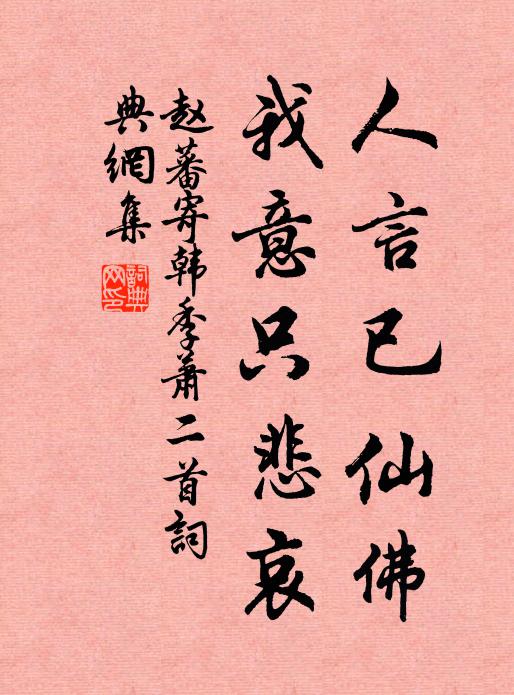 人言已仙佛
我意只悲哀
赵蕃寄韩季萧二首詞
典網集
詞典网印